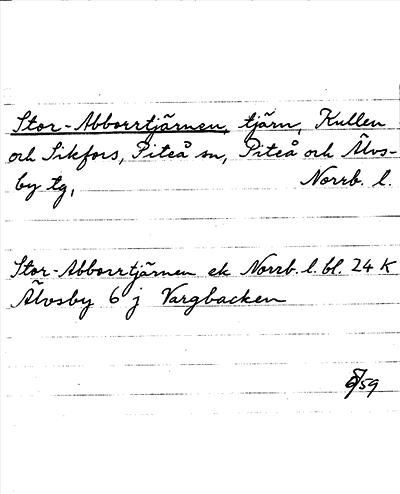 Stor-Abborrtjärnen, tjärn, Kullen
och Sikfors, Piteå sn, Piteå och Älvs-
by tg, Norrb. l.
Stor-Abborrtjärnen ek Norrb. l. bl. 24 K
Älvsby 6 j Vargbacken
/59